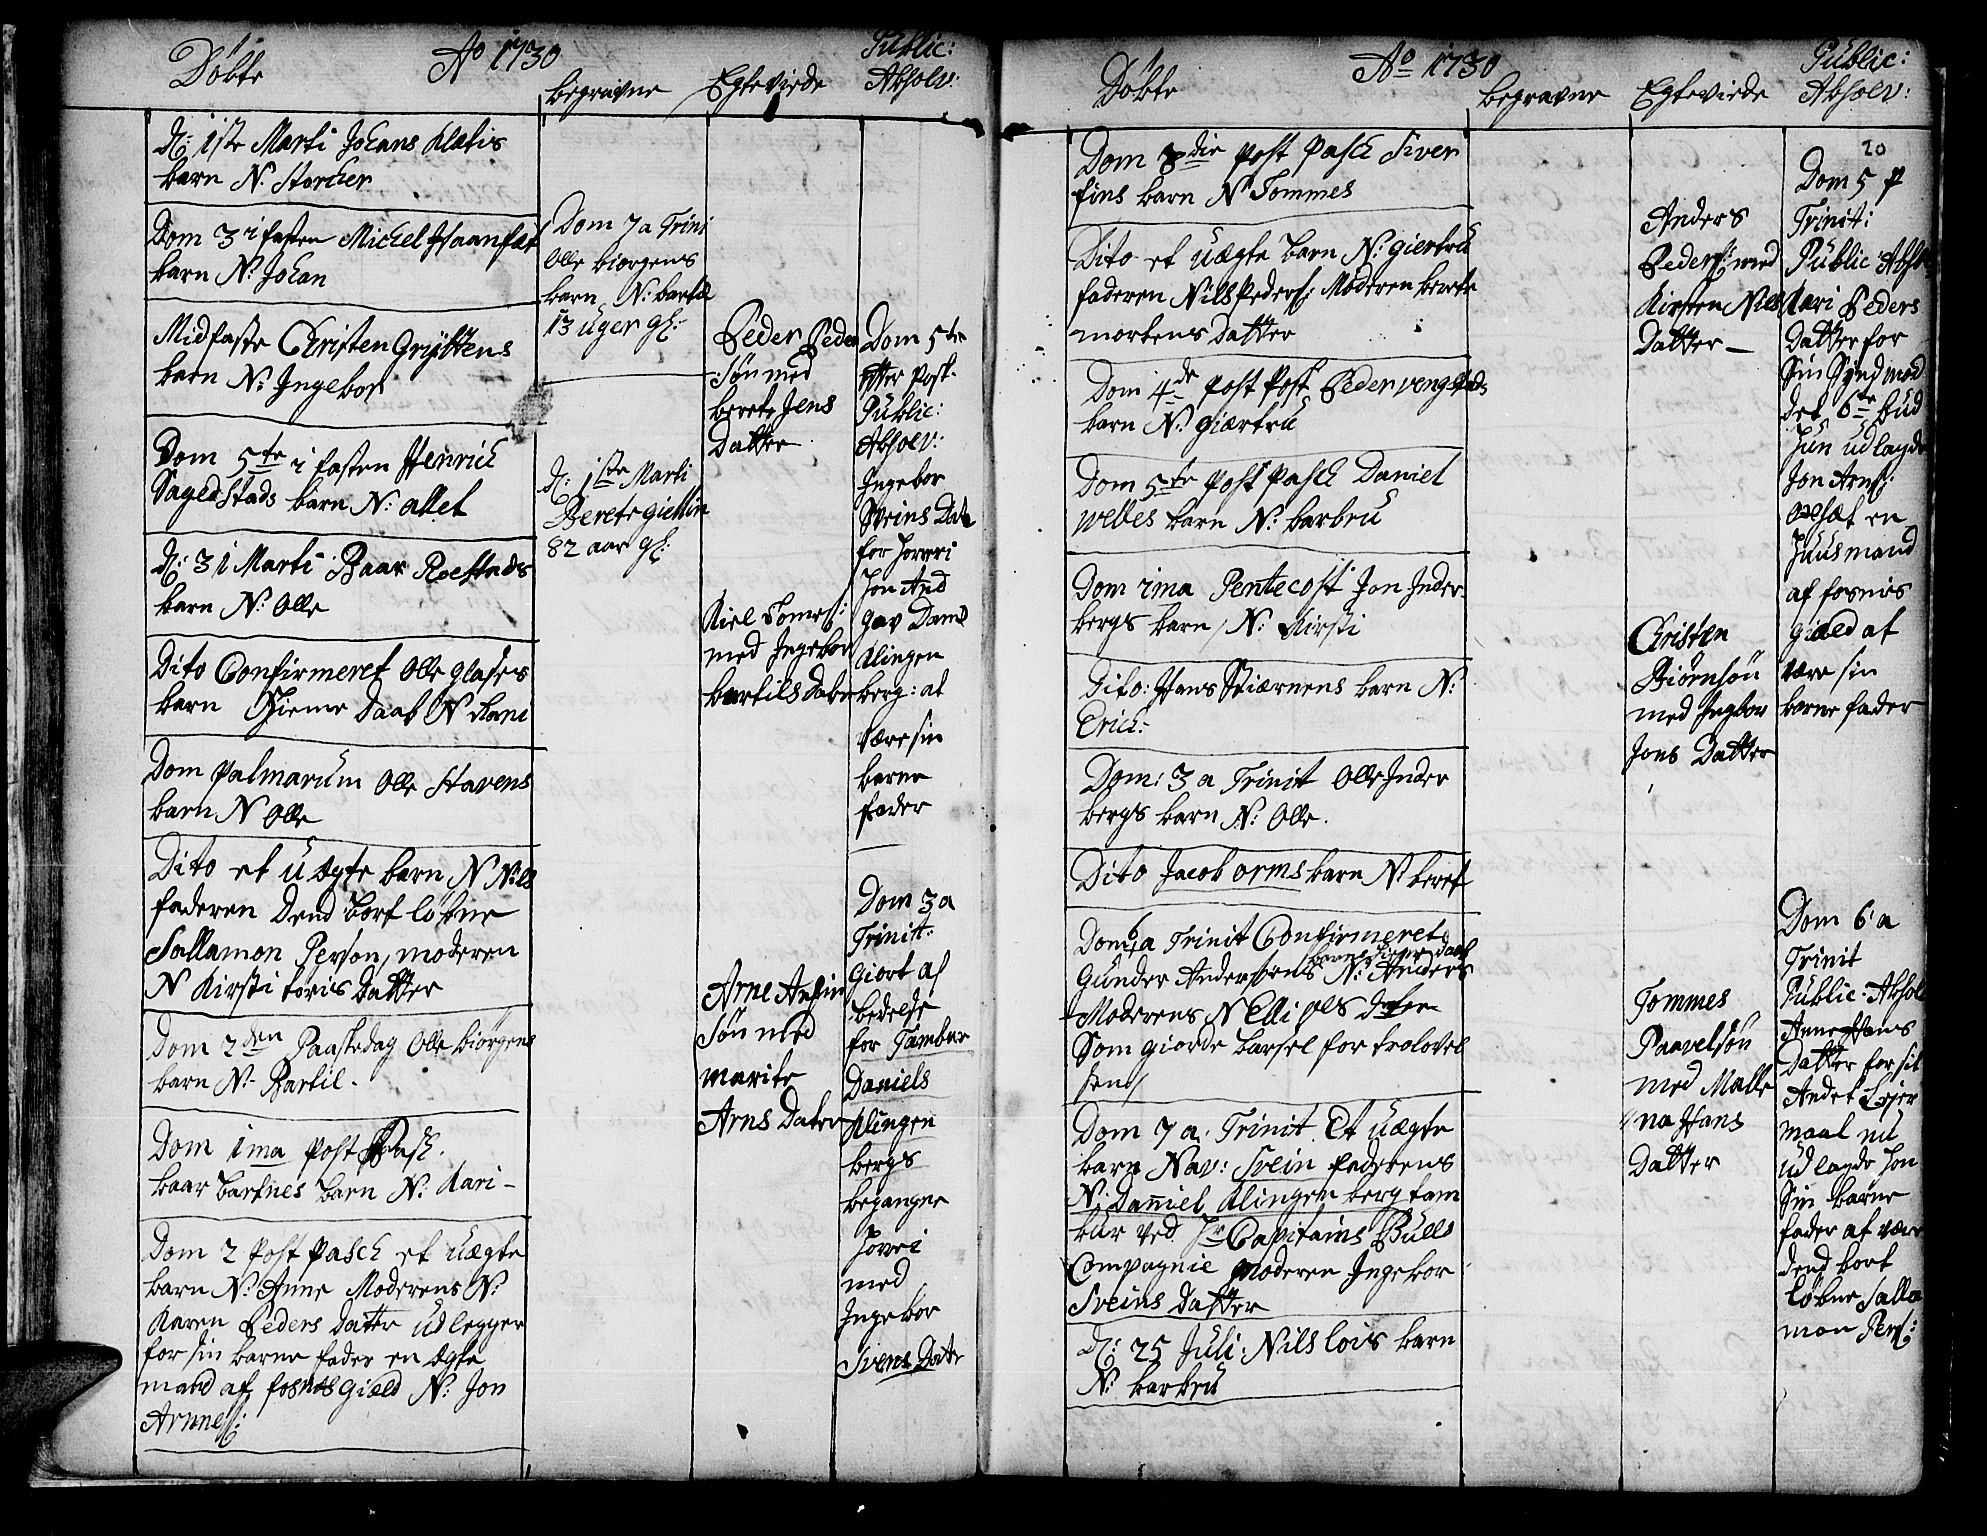 Döbte
Ao 1730
begravne
Egteviede
Public:
Absolv:
D: 1ste Marti Johans Kletis
barn N. Storcher
Dom 3 i fasten Michel Haanset
barn N: Johan
Midfaste Christen Gryttens
barn N: Ingebor
Dom 5te i fasten Henrich
Sagedstads barn N: allet
D: 31 Marti Baar Roestads
barn N: Olle
Dito Confirmeret Olle Glases
barn Hieme Daab N Kari
Dom Palmarum Olle Stavens
barn N Olle
Dito et uægte barn N Nils
faderen Dend bort löbne
Sallamon Person, moderen
N Kirsti toris Datter
Dom 2den Paaskedag Olle Biörgens
barn N. Bartil.
Dom 1ma Post Pasc.
baar bartnes barn N: Kari -
Dom 2 Post Pasch et uægte
barn N: Anne Moderens N:
Karen Peders Datter udlegger
for sin barne fader en ægte
mand af fosnes Gield N: Jon
Arnnes:
Dom 7 a Trini
Olle biörgens
barn N: bartel
13 uger gl:
D: 1ste Marti
Berete giellin
82 aar gl:
Peder Peder
Sön med
berete Jens
Datter
Kiel Tomes:
med Ingebor
bartils Dater
Arne Anfin
sön med
marite
Arns Dater
Dom 5te
efter Post.
Public:
Absolv:
Ingebor
Sveins Date
for horeri
Jon And
gav Daniel
Klingen
berg: at
være sin
barne
fader
Dom 3 a
Trinit:
giort af
bedelse
for Tambur
Daniels
Klingen
bergs
begangne
horeri
med
Ingebor
Svens Date
Döbte
Ao 1730
begravne
Egteviede
Public:
Absolv:
20
Dom 3die Post Pasch Siver
fins barn N Tommes
Dito et uægte barn N: giertru
faderen Nils Peders: Moderen berete
mortens Datter
Dom 4de Post Post Peder vengstads
barn N: giærtru
Dom 5te Post Pasch Daniel
webes barn N: barbru
Dom 1ma Pentecost Jon Inder
bergs barn N: Kirsti
Dito: Hans Stiærnens barn N:
Erich:
Dom: 3 a Trinit Olle Inder
bergs barn N: Olle.
Dito Jacob orms barn N: beret
Dom 6 a Trinit Confirmeret
Gunder Andersöns barn Hieme daab N: Anders
Moderens N Elli Ols Dater
Som giorde barsel for trolovel
sen
Dom 7 a. Trinit. Et uægte
barn Nav: Svein faderens
N: Daniel Klingenberg tam
bur ved Hr Capitains Bulls
Compagnie Moderen Ingebor
Sveins Datter
D: 25 Juli: Nils lois barn
N: barbru
Anders
Peders: med
Kirsten Nils
Datter -
Christen
Biörnsön
med Ingbor
Jons Datter
Tommes
Paavelsön
med Malle
na Hans
Datter
Dom 5 p
Trinit:
Public Absol
Kari Peders
Datter for
Sin Synd mod
det 6te bud
hun udlagde
Jon Arns:
opsæt en
huusmand
af fosnis
gield at
være sin
barne fader
Dom 6 a
Trinit
Public: Absol
Anne Hans
Datter for sit
Andet Leier
maal nu
udlagde hon
Sin barne
fader at være
dend bort
löbne Salla
mon Pers: